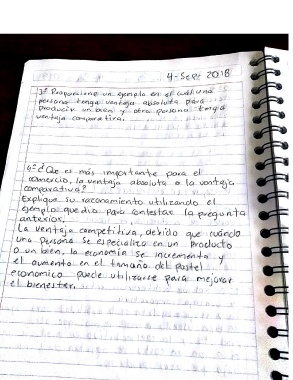 4-Sept 2018
3º Proporcione un ejemplo en el cual una
persona tenga ventaja absoluta para
producir un bien y otra persona tenga
ventaja comparativa.
4º ¿Que es más importante para el
comercio, la ventaja absoluta o la ventaja
comparativa?
Explique su razonamiento utilizando el
ejemplo que dio para contestar la pregunta
anterior.
La ventaja competitiva, debido que cuando
una persona se especializa en un producto
o un bien, la economía se incrementa y
el aumento en el tamaño del pastel
economico puede utilizarse para mejorar
el bienestar.